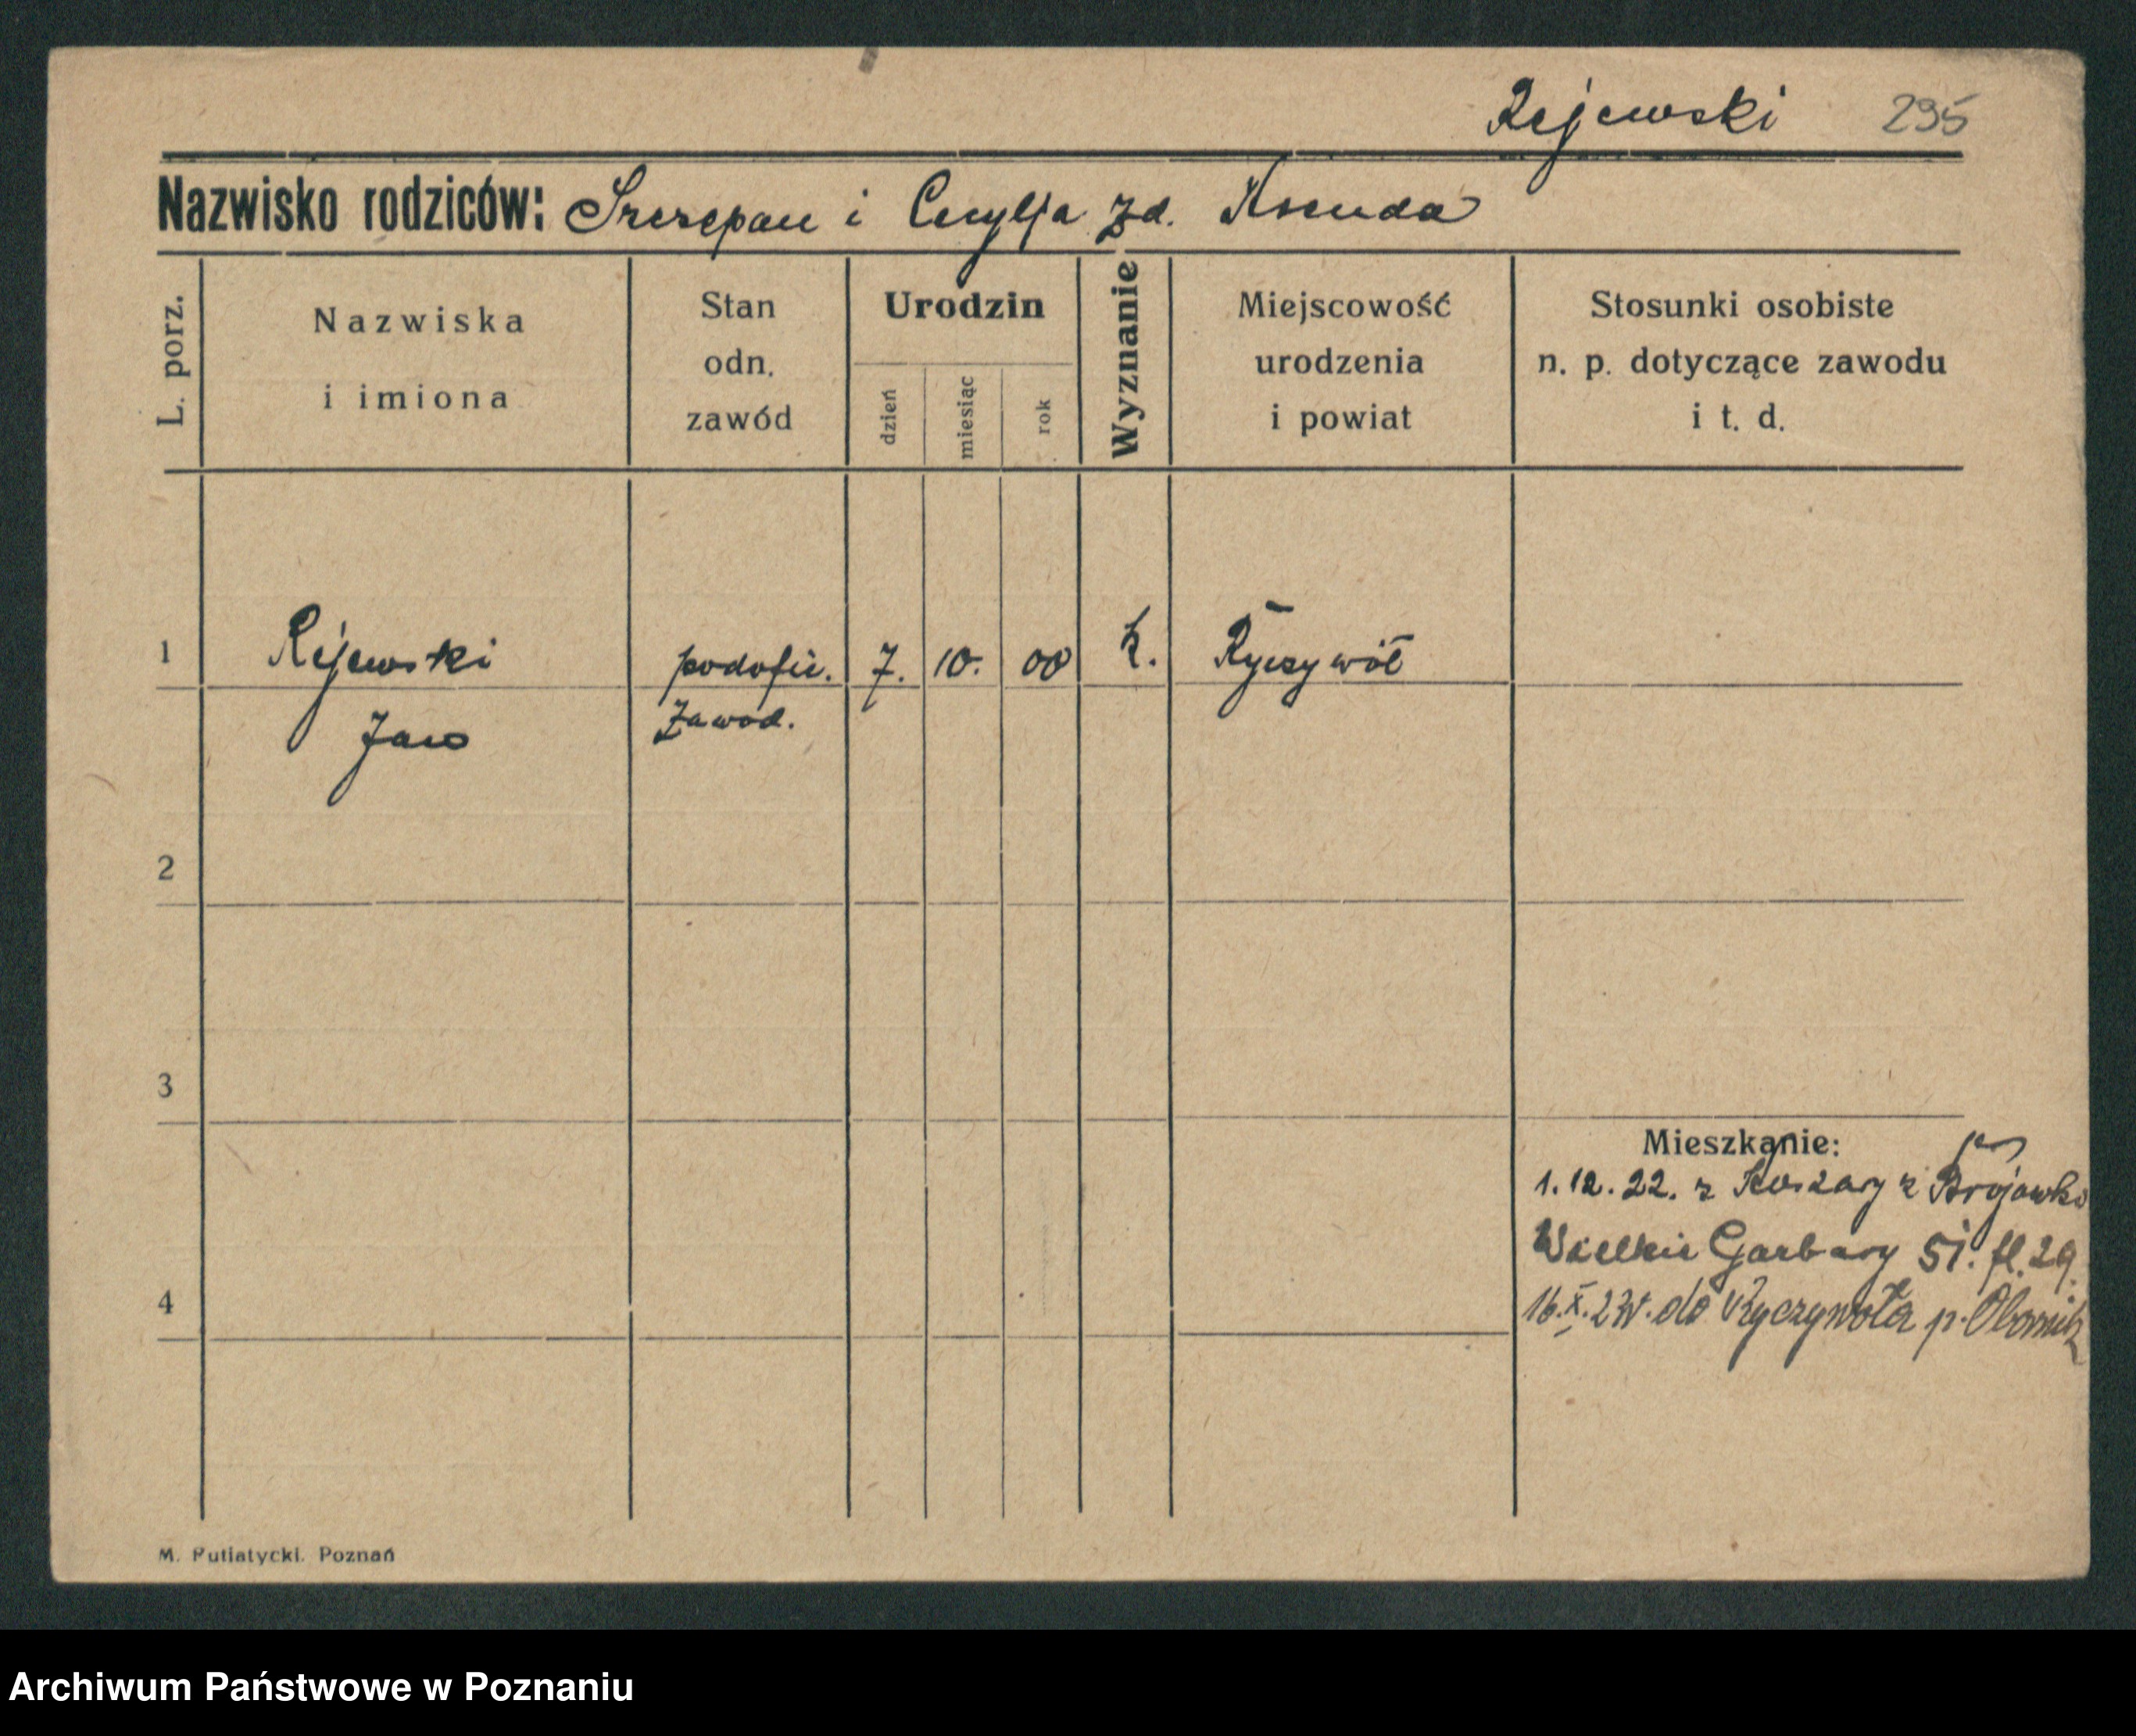 Rejewski 295
Nazwisko rodziców: Szczepan i Cecylja zd. Ksenda
L. porz.
Nazwiska
i imiona
Stan
odn.
zawód
Urodzin
dzień
miesiąc
rok
Wyznanie
Miejscowość
urodzenia
i powiat
Stosunki osobiste
n. p. dotyczące zawodu
i t. d.
1 Rejewski podofic. 7. 10. 00 k. Ryczywół
Jan zawod.
2
3
Mieszkanie:
1.12.22. z Koszary z
Wielkie Garbary 51. fl. 29.
4 16.X. do Ryczywoła p. Obornik
M. Putiatycki. Poznań
Archiwum Państwowe w Poznaniu